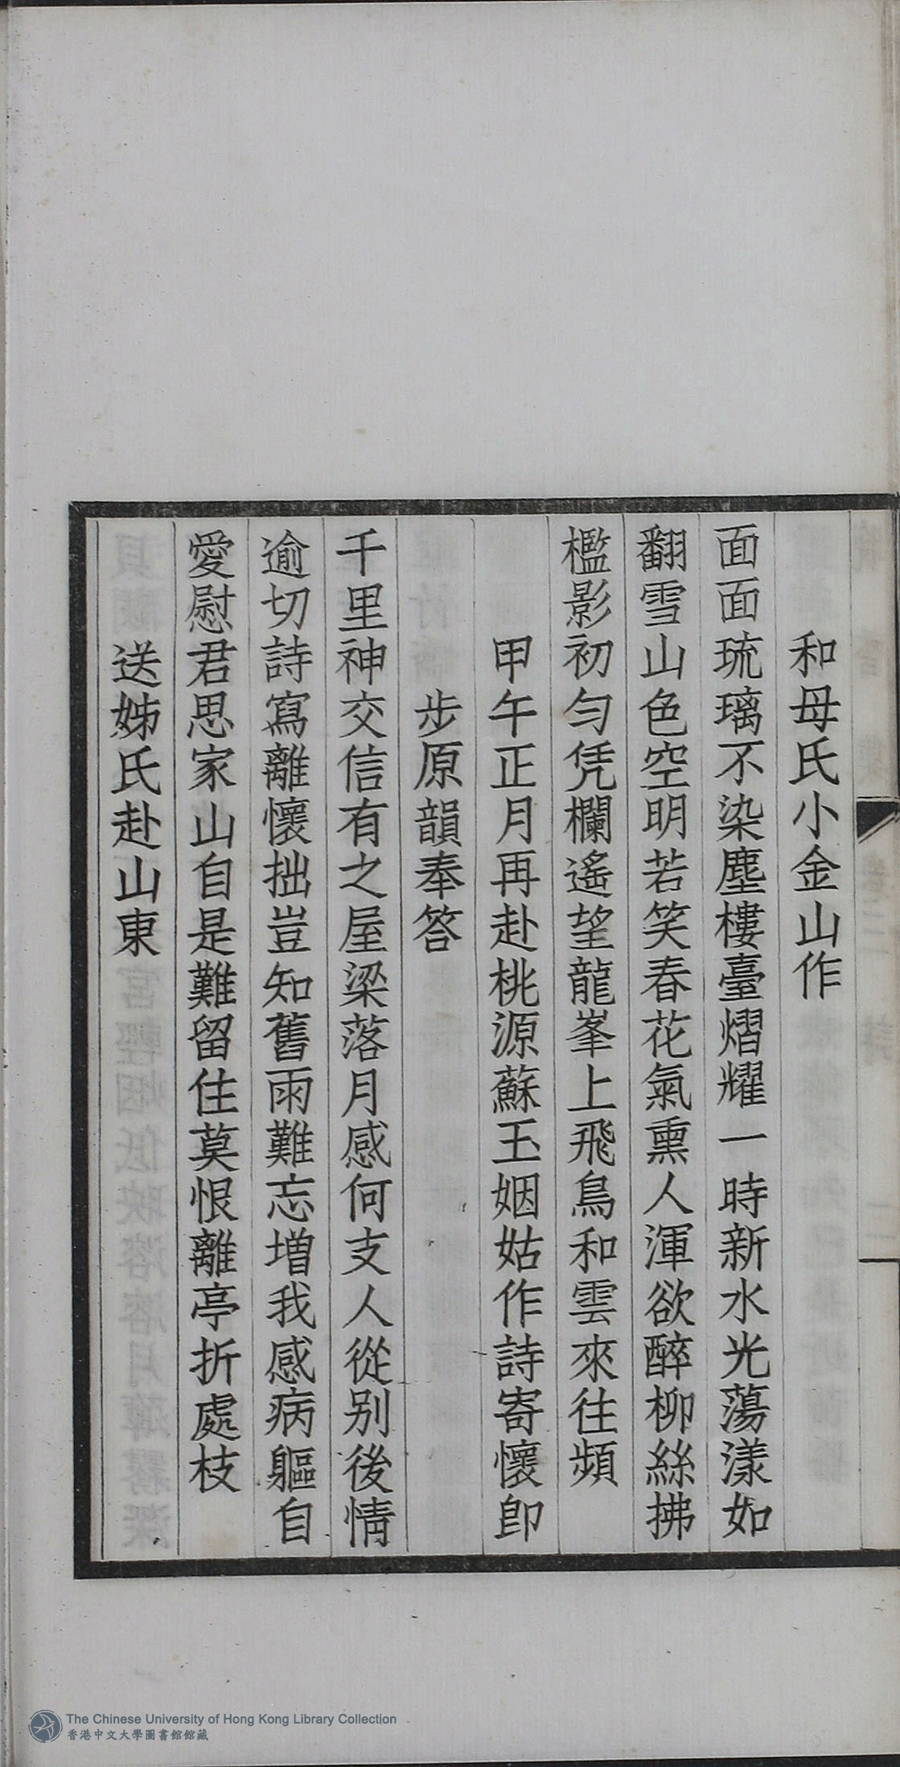 和母氏小金山作
面面琉璃不染塵樓臺熠耀一時新水光蕩漾如
翻雪山色空明若笑春花氣熏人渾欲醉柳絲拂
檻影初勻凭欄遙望龍峯上飛鳥和雲來往頻
甲午正月再赴桃源蘇玉姻姑作詩寄懷卽
步原韻奉答
千里神交信有之屋梁落月感何支人從别後情
逾切詩寫離懷拙豈知舊雨難忘增我感病軀自
愛慰君思家山自是難留住莫恨離亭折處枝
送姊氏赴山東
The Chinese University of Hong Kong Library Collection
香港中文大學圖書館館藏